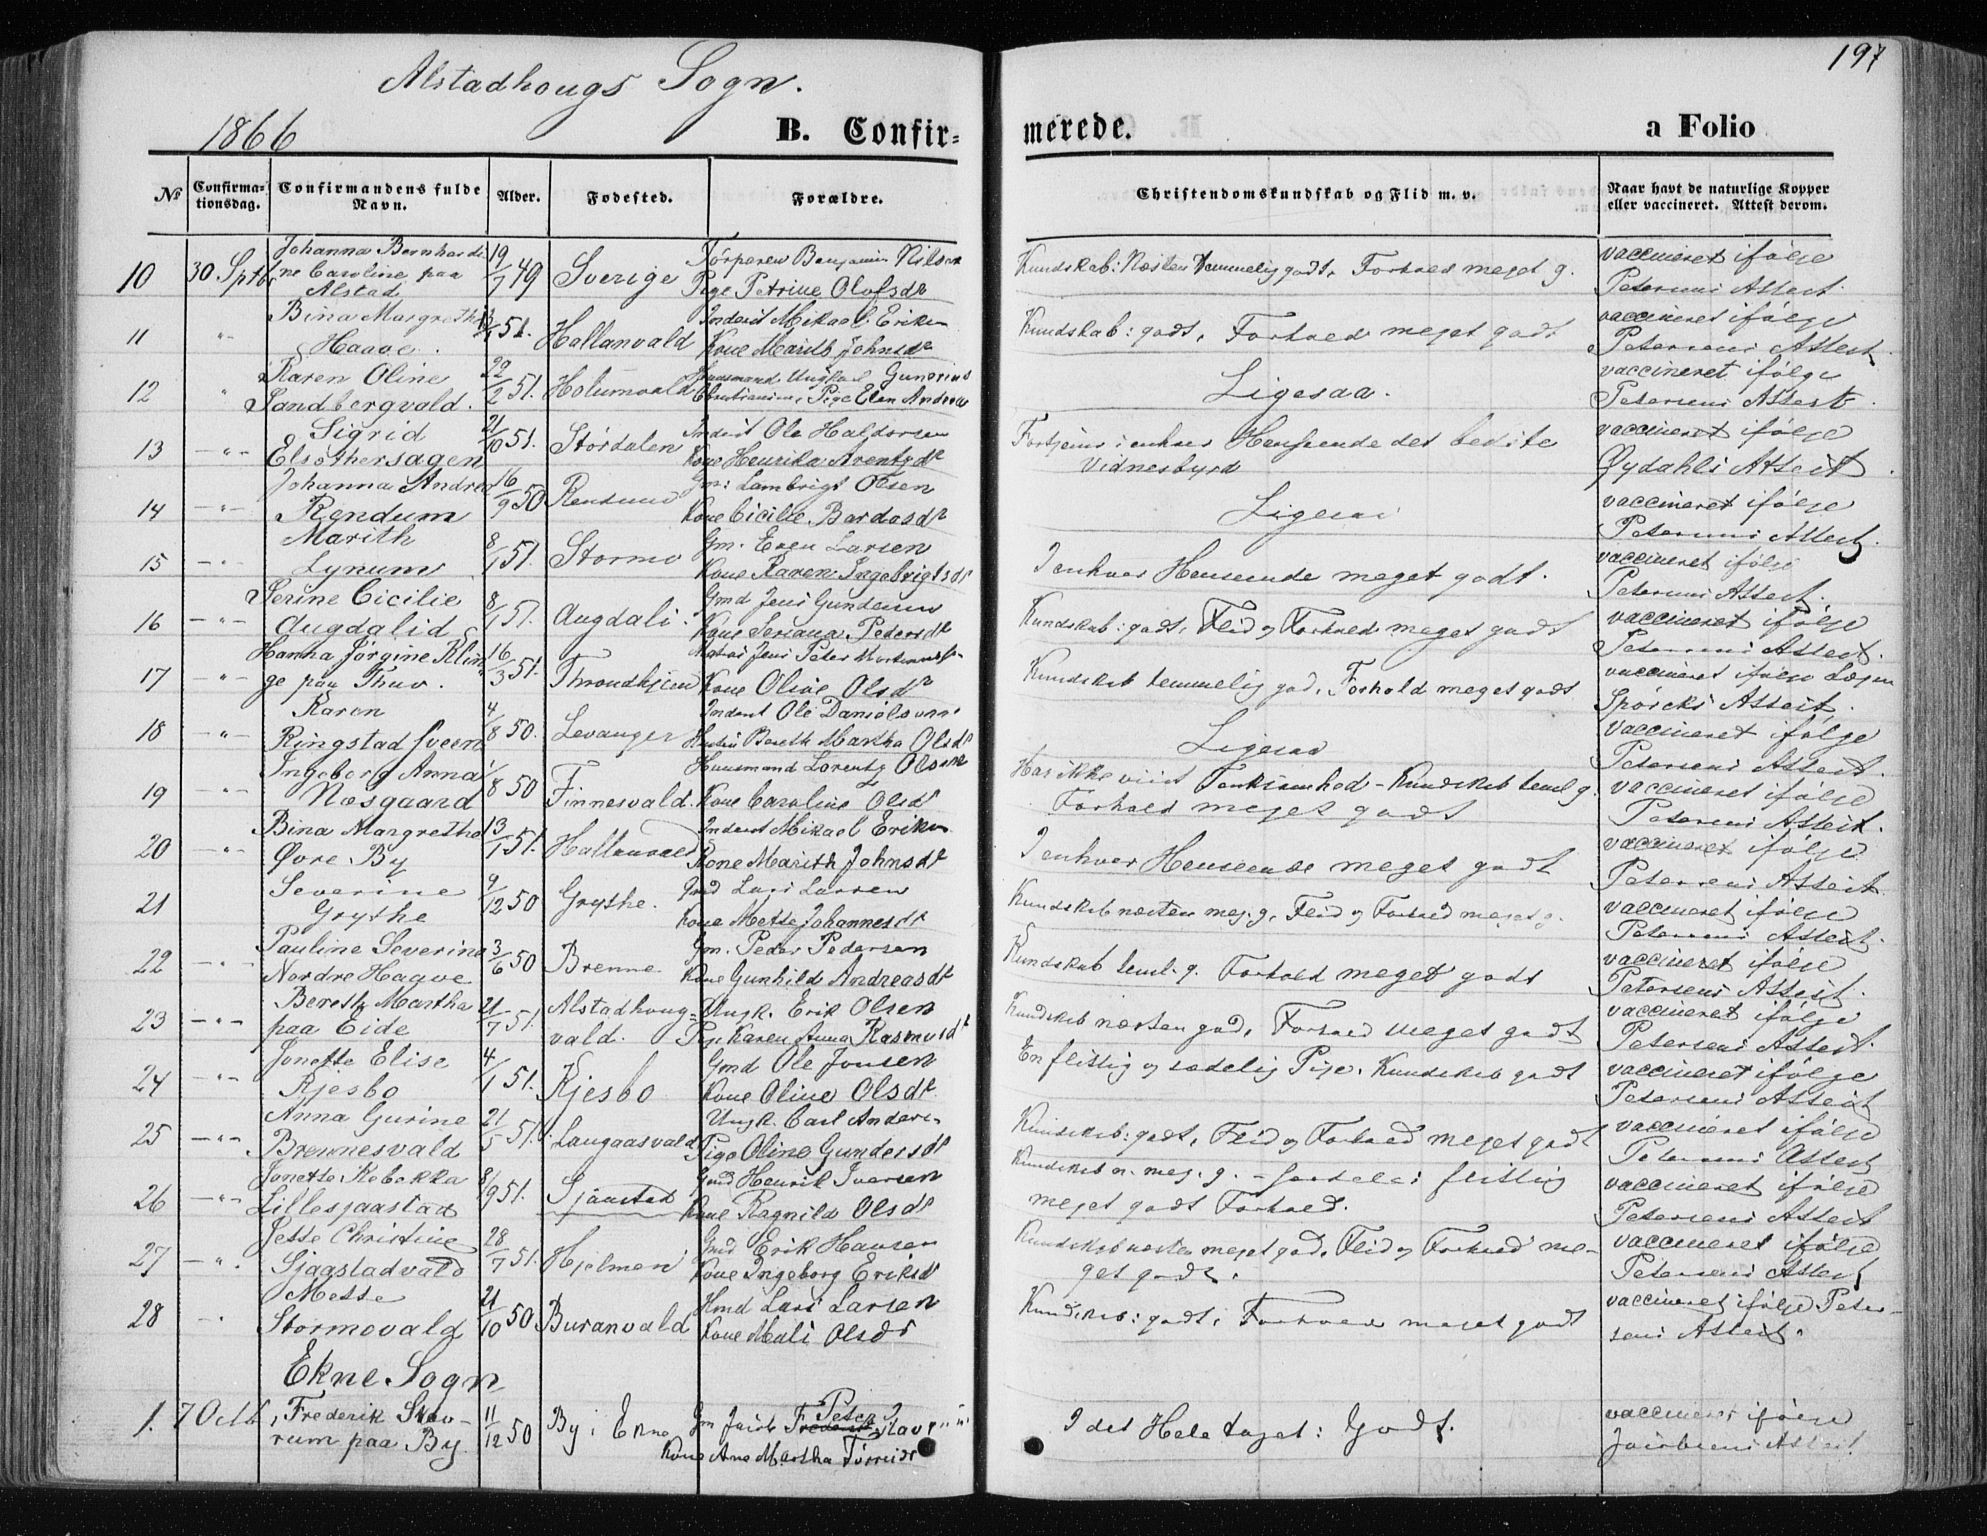 Alstadhougs Sogn.
197
1866
B. Confir=
merede.
a Folio
No
Confirma=
tionsdag.
Confirmandens fulde
Navn.
Alder.
Fødested.
Forældre.
Christendomskundskab og Flid m. v.
Naar havt de naturlige Kopper
eller vaccineret. Attest derom.
10 30 Sptbr Johanna Bernhardi
ne Caroline paa
Alstad
19/7 49 Sverige
Pige Petrine Olofsdt
Kundskab: Næsten temmelig godt, Forhold meget g.
vaccineret ifølge
Petersens Attest.
11 -"- Bina Margrethe
Haave.
13/1 51. Hallanvald
Inderst Mikael Eriksen
Kone Marith Johnsdt
Kundskab: godt, Forhold meget godt
vaccineret ifølge
Petersens Attest.
12 " Karen Oline
Sandbergvald.
22/2 51. Holumvald
Gunerius
Pige Elen Andrea
Ligesaa.
vaccineret ifølge
Petersens Attest.
13 -"- Sigrid
Elsøthersagen
21/10 51. Stördalen
Inderst Ole Haldorsen
Kone Henrika Arentzdt
Fortjener i enhver Henseende det bedste
Vidnesbyrd
vaccineret ifølge
Øydahls Attest.
14 -"- Johanna Andrea
Rendum
16/9 50 Rendum
Gm: Lambrigt Olsen
Kone Cicilie Bardosdt
Ligesaa
vaccineret ifølge
Petersens Attest.
15 -"- Marith
Lynum
8/1 51. Stormo
Gm. Even Larsen
Kone Karen Ingebrigtsdt
I enhver Henseende meget godt.
vaccineret ifølge
Petersens Attest.
16 -"- Serine Cicilie
Augdalid
8/1 51. Augdali.
Gmd Jens Gundersen
Kone Seriana Pedersdt
Kundskab: godt, Flid og Forhold meget godt
vaccineret ifølge
Petersens Attest.
17 -"- Hanna Jörgine Klin
ge paa Thuv.
16/3 51. Throndhjem
Jens Peter
Kone Oline Olsdt
Kundskab temmelig god, Forhold meget godt
vaccineret ifølge Lægen
Spörcks Attest.
18 -"- Karen
Ringstadsveen
4/8 50. Levanger
Inderst Ole Danielsen
Bereth Martha Olsdt
Ligesaa
vaccineret ifølge
Petersens Attest.
19 -"- Ingeborg Anna
Næsgaard
1/8 50 Finnesvald.
Huusmand Lorentz Olsen
Kone Caroline Olsdt
Har ikke viist Tænksomhed - Kundskab teml g.
Forhold meget godt
vaccineret ifølge
Petersens Attest.
20 -"- Bina Margretha
Øvre By
13/1 51. Hallanvald
Inderst Mikael Eriksen
Kone Marith Johnsdt
I enhver Henseende meget godt
vaccineret ifølge
Petersens Attest
21 Severine
Grythe
9/12 50 Grythe.
Gmd Lars Larsen
Kone Mette Johannesdt
Kundskab næsten meg. g, Flid og Forhold meget g.
vaccineret ifølge
Petersens Attest.
22 -"- Pauline Severine
Nordre Hagve
3/6 50 Brenne
Gm. Peder Pedersen
Kone Gunhild Andreasdt
Kundskab teml. g. Forhold meget godt
vaccineret ifølge
Petersens Attest.
23 -"- Bereth Martha
paa Eide
21/7 51. Alstadhoug=
vald.
Ungk. Erik Olsen
Pige Karen Anna Rasmusdt
Kundskab næsten god, Forhold meget godt
vaccineret ifølge
Petersens Attest.
24 -"- Jonette Elise
Kjesbo
4/1 51. Kjesbo
Gmd Ole Jonsen
Kone Oline Olsdt.
En flittig og sædelig Pige. Kundskab godt
vaccineret ifølge
Petersens Attest
25 -"- Anna Gurine
Brennesvald
21/5 51. Laugaasvald
Ungk. Carl Anders.
Pige Oline Gundersdt
Kundskab: godt, Flid og Forhold meget godt
vaccineret ifølge
Petersens Attest
26 -"- Jonette Rebekka
Lillesjaastad
8/9 51. Sjaastad
Gmd Henrik Iversen
Kone Ragnild Olsdt
Kundskab n. meg. g. - flittig
meget godt Forhold.
vaccineret ifølge
Petersens Attest
27 -"- Jette Christine
Sjaastadvald
28/7 51. Hjelmen
Gmd Erik Hansen
Kone Ingeborg Eriksd
Kundskab næsten meget god, Flid og Forhold me-
get godt.
vaccineret ifølge
Petersens Attest
28 Mette
Stormovald
21/10 50 Buranvald
Hmd Lars Larsen
Kone Mali Olsdt
Kundskab: godt, Forhold meget godt
vaccineret ifølge Peter-
sens Attest.
Ekne Sogn
1. 7 Octb, Frederik Skav-
rum paa By
11/12 50 By i Ekne
Gm Jacob Peter
Kone Ane Martha
I det Hele taget: Godt.
vaccineret ifølge
Jacobsens Attest